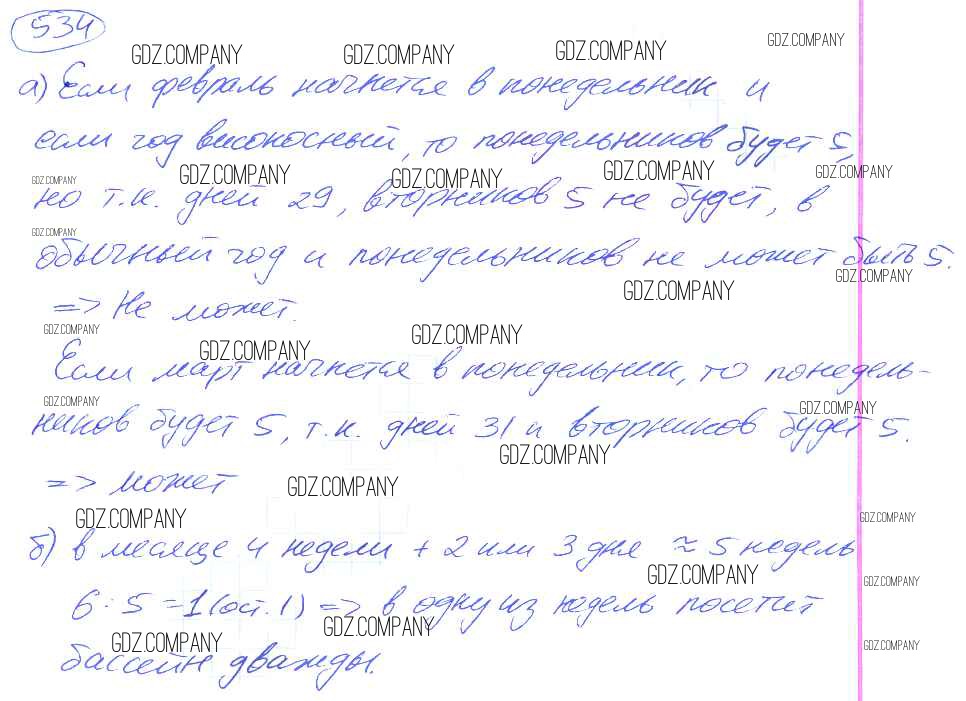 534
GDZ.COMPANY GDZ.COMPANY GDZ.COMPANY GDZ.COMPANY
а) Если февраль начнется в понедельник и
если год високосный, то понедельников будет 5,
GDZ.COMPANY GDZ.COMPANY GDZ.COMPANY GDZ.COMPANY GDZ.COMPANY
но т.к. дней 29, вторников 5 не будет, в
GDZ.COMPANY
обычный год и понедельников не может быть 5.
GDZ.COMPANY GDZ.COMPANY
=> Не может.
GDZ.COMPANY GDZ.COMPANY GDZ.COMPANY
Если март начнется в понедельник, то понедель-
GDZ.COMPANY GDZ.COMPANY
ников будет 5, т.к. дней 31 и вторников будет 5.
GDZ.COMPANY
=> может
GDZ.COMPANY
GDZ.COMPANY GDZ.COMPANY
б) в месяце 4 недели + 2 или 3 дня ≈ 5 недель
GDZ.COMPANY GDZ.COMPANY
6 : 5 = 1 (ост. 1) => в одну из недель посетит
GDZ.COMPANY GDZ.COMPANY GDZ.COMPANY
бассейн дважды.